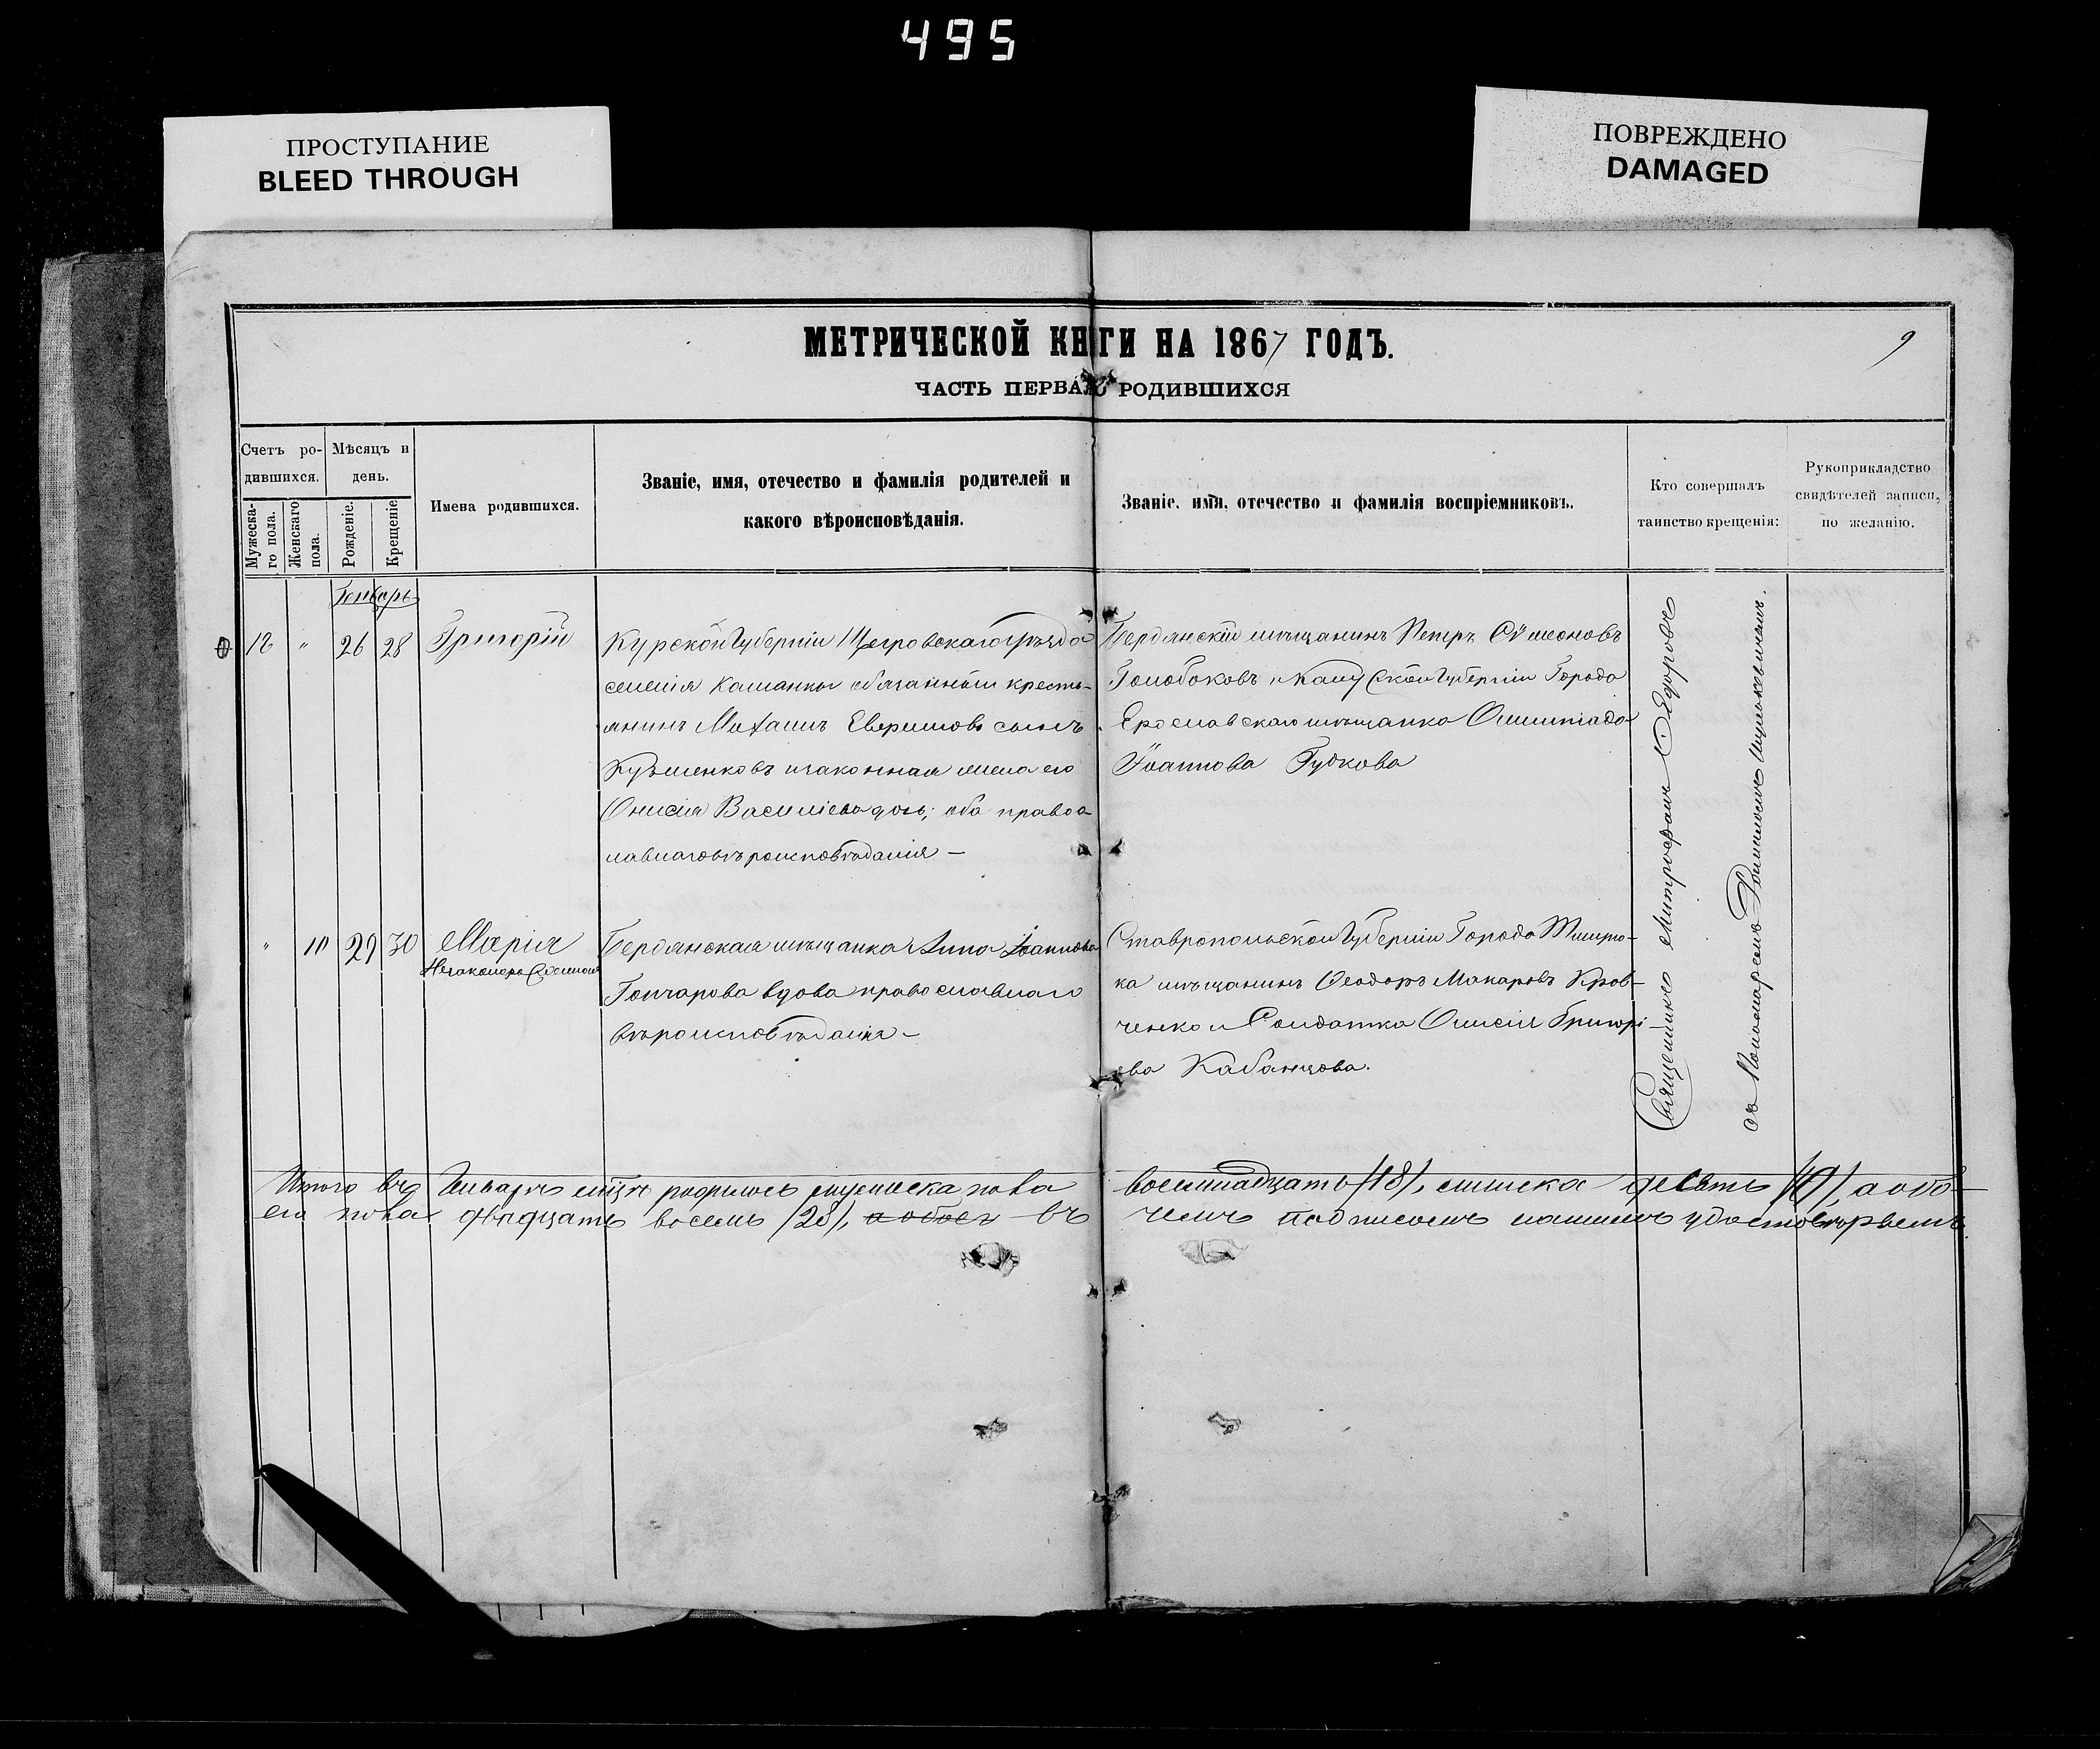 495
ПРОСТУПАНИЕ
BLEED THROUGH
ПОВРЕЖДЕНО
DAMAGED
МЕТРИЧЕСКОЙ КНИГИ НА 1867 ГОДЪ.
9
ЧАСТЬ ПЕРВАЯ О РОДИВШИХСЯ
Счетъ ро-
дившихся.
Мужеска-
го пола.
Женскаго
пола.
Мѣсяцъ и
день.
Рожденіе.
Крещеніе
Имена родившихся.
Званіе, имя, отечество и фамилія родителей и
какого вѣроисповѣданія.
Званіе, имя, отечество и фамилія воспріемниковъ.
Кто совершалъ
таинство крещенія:
Рукоприкладство
свидѣтелей записи,
по желанію.
Генварь
18 " 26 28 Григорій
Курской Губерніи Щегровскаго уѣзда
селенія обязанный кресть-
янинъ Михаилъ сынъ
Кузменковъ и законная жена его
Онисія Василіева дочь; оба правос-
лавнаго вѣроисповѣданія —
Бердянскій мѣщанинъ Петръ Сѵмеоновъ
Голобоковъ и Губерніи Города
мѣщанка Олимпіада
Іоаннова Гудкова
" 10 29 30 Марія
Незаконорожденная
Бердянская мѣщанка Анна Іоаннова
Гончарова вдова православнаго
вѣроисповѣданія —
Ставропольской Губерніи Города
ка мѣщанинъ Ѳеодоръ Макаровъ Кров-
ченко и Солдатка Онисія Григорі-
ева Кабанцова.
Священникъ Митрофанъ Ѳедоровъ
съ Пономаремъ
Итого въ Январѣ мцѣ родилось мужеска пола
восемнадцать /18/, женска десять /10/, а обо-
его пола двадцать восемь /28/, а обоего въ
чемъ подписомъ нашимъ удостовѣряемъ.